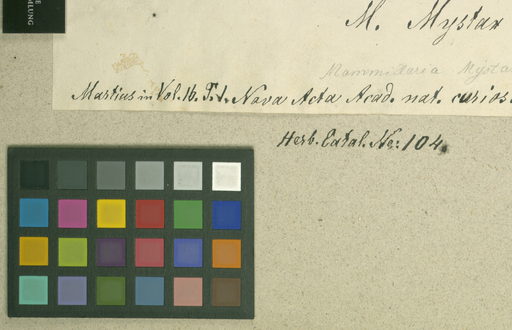 MLUNG
M. Mystax
Mammillaria Mysta
Martius in Vol. 16. P. 1. Nova Acta Acad. nat. curios.
Herb. Catal. No: 104